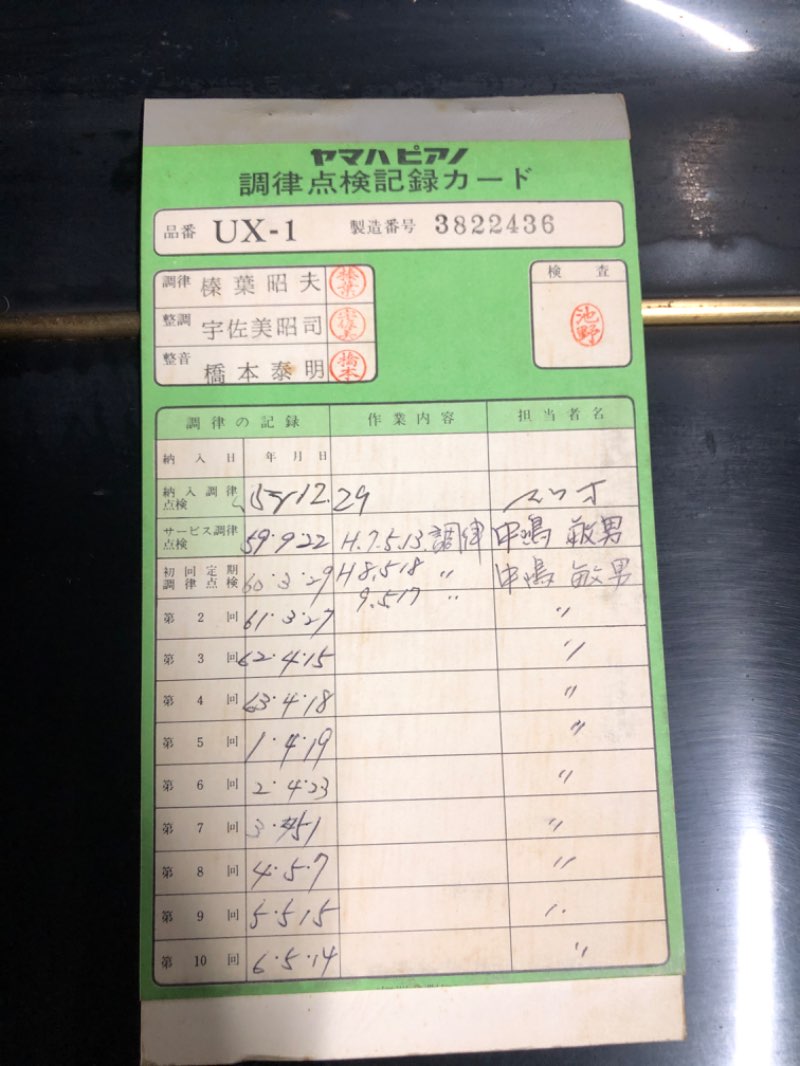 ヤマハピアノ
調律点検記録カード
品番 UX-1 製造番号 3822436
調律 榛葉昭夫 榛葉
整調 宇佐美昭司 宇佐美
整音 橋本泰明 橋本
検査
池野
調律の記録 作業内容 担当者名
納入日 年月日
納入調律点検 12.29
サービス調律点検 59・9・22 H.7.5.13.調律 中嶋敏男
初回定期調律点検 60・3・29 H8.5.18 〃 中嶋敏男
9.5.17 〃
第2回 61・3・27 〃
第3回 62・4・15 〃
第4回 63・4・18 〃
第5回 1・4・19 〃
第6回 2・4・23 〃
第7回 3・5・1 〃
第8回 4・5・7 〃
第9回 5・5・15 〃
第10回 6・5・14 〃